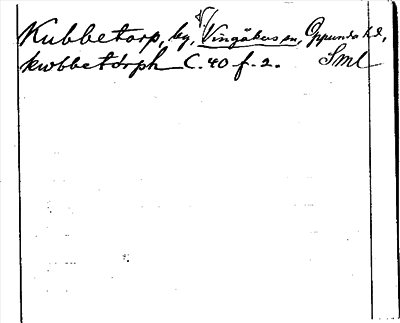 V.
Kubbetorp, by, Vingåkers sn, Oppunda hd,
kwbbetorph C. 40 f. 2. Sml